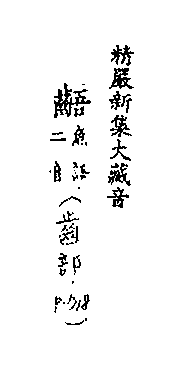 精嚴新集大藏音
齬魚語二音(齒部.P.718)